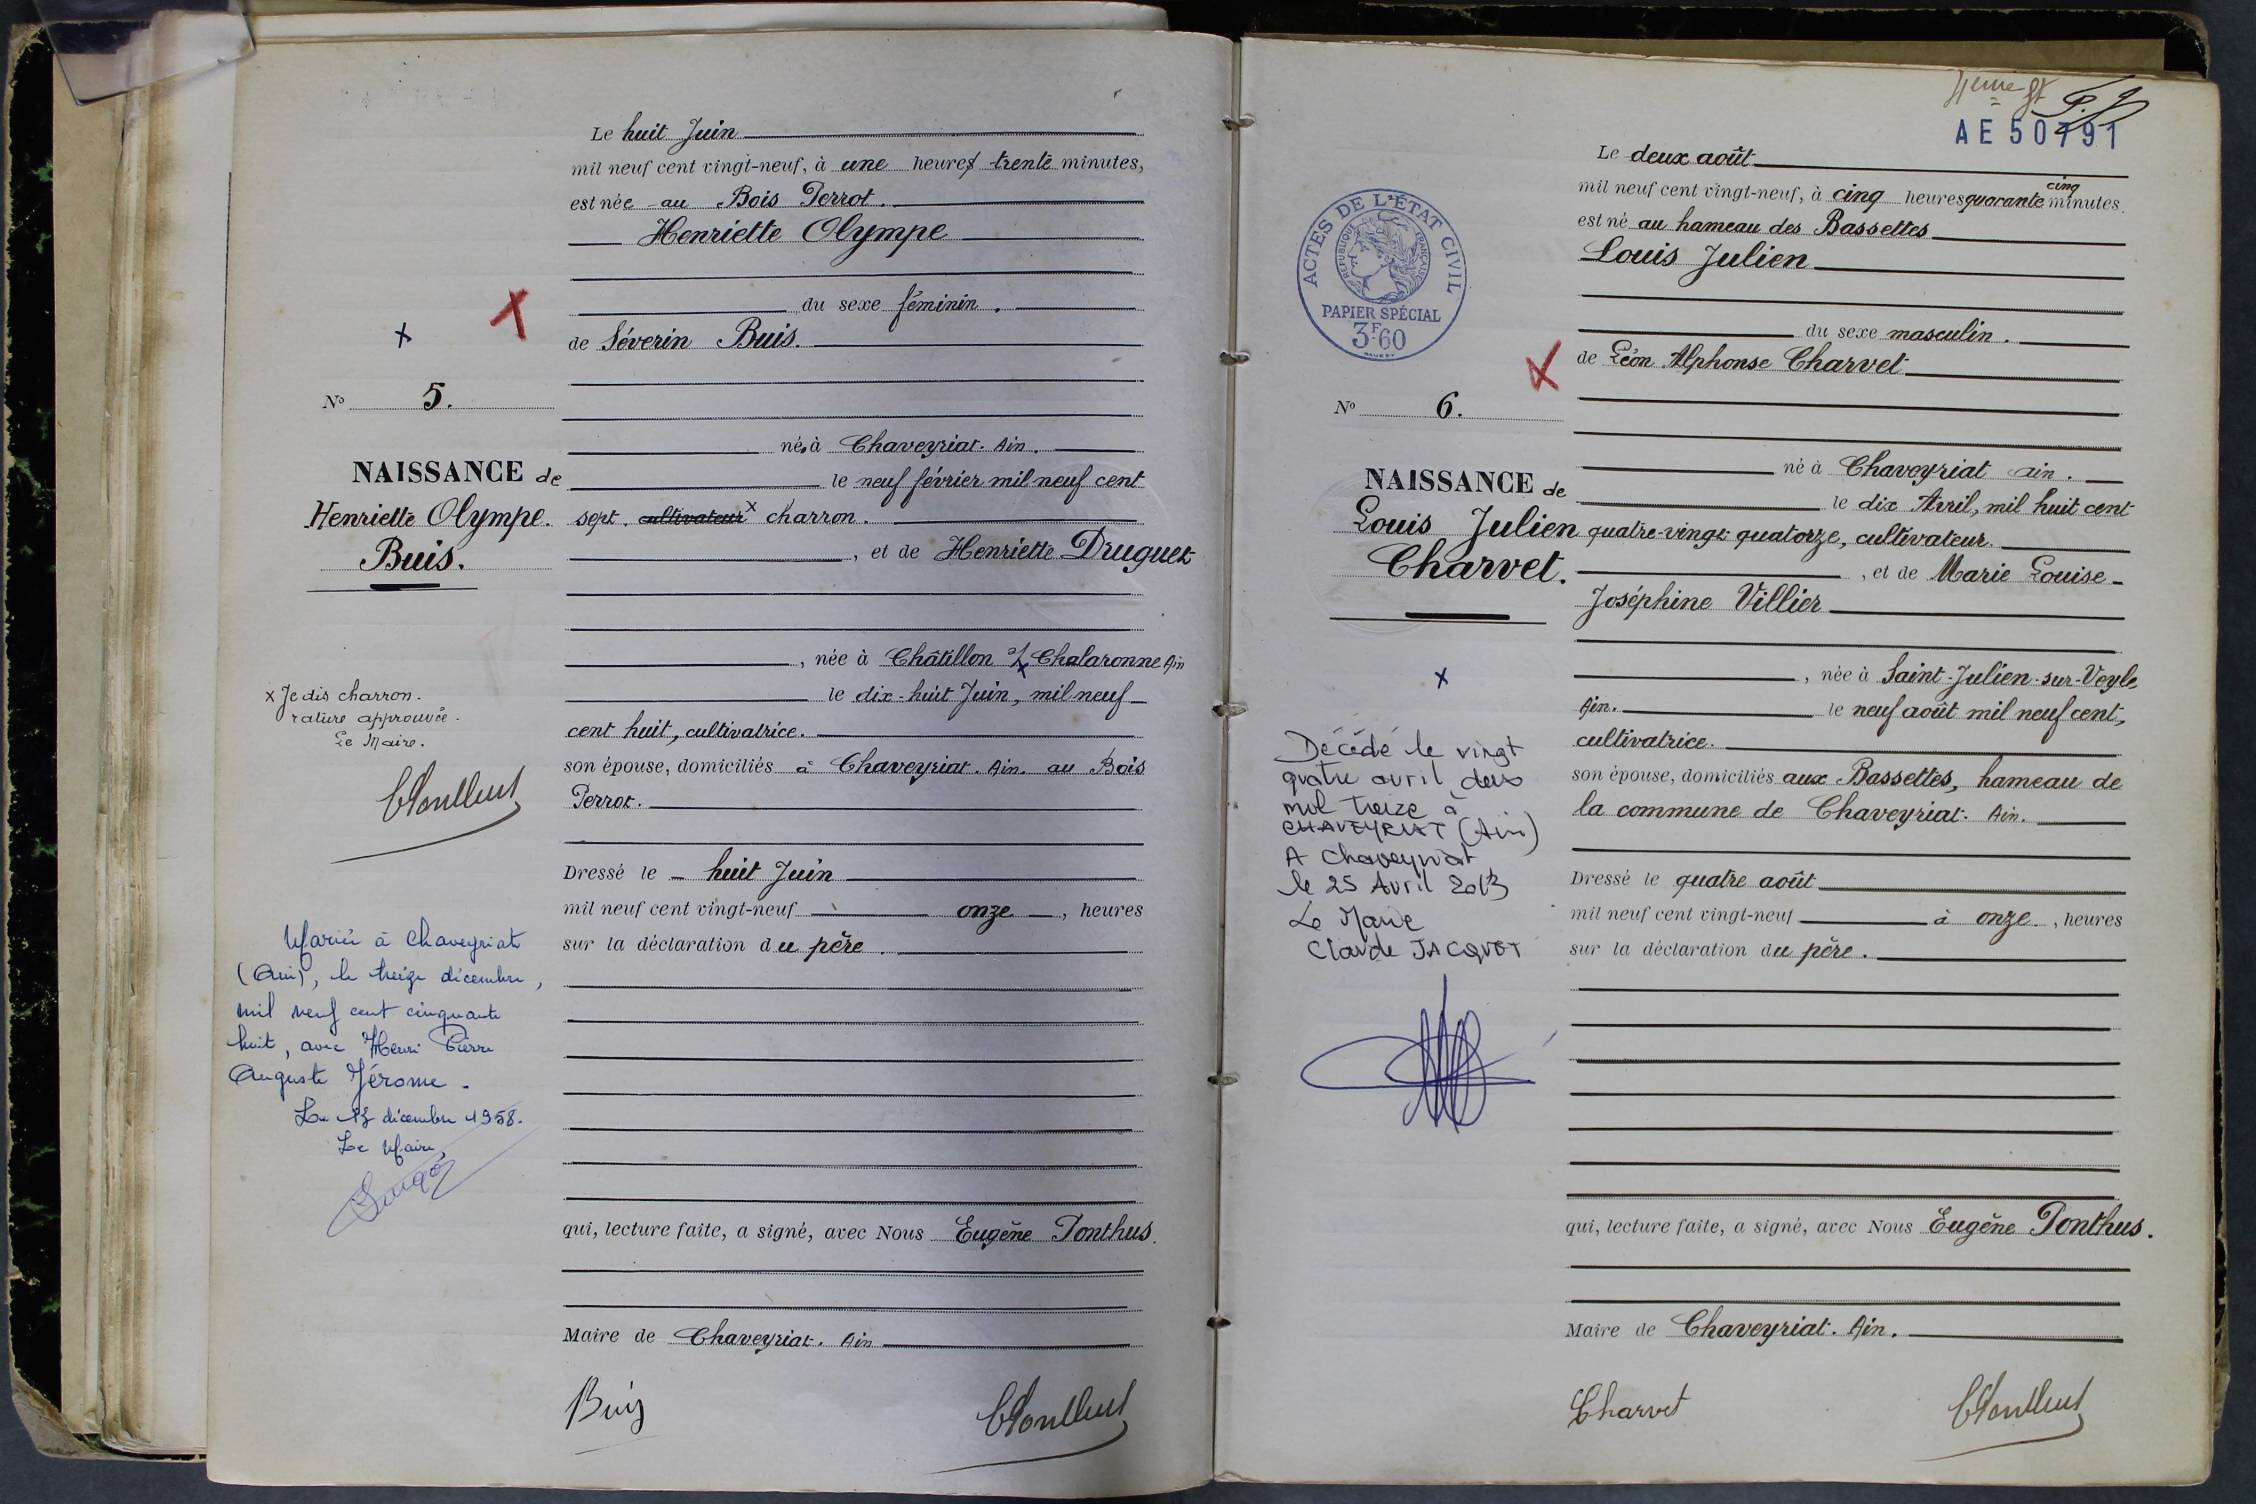 Le huit Juin
mil neuf cent vingt-neuf, à une heures trente minutes,
est née au Bois Perrot.
Henriette Olympe
du sexe féminin.
de Séverin Buis.
N° 5.
né à Chaveyriat. Ain.
NAISSANCE de
le neuf février mil neuf cent
Henriette Olympe.
Buis.
sept. cultivateur x charron.
, et de Henriette Druguet
, née à Châtillon s/ Chalaronne Ain
le dix-huit Juin, mil neuf
cent huit, cultivatrice.
son épouse, domiciliés à Chaveyriat. Ain. au Bois
Perrot.
x Je dis charron.
rature approuvée.
Le Maire.
Dressé le huit Juin
mil neuf cent vingt-neuf onze, heures
sur la déclaration du père.
Mariée à Chaveyriat
(Ain), le treize décembre,
mil neuf cent cinquante
huit, avec Henri Pierre
Auguste Jérome.
Le 13 décembre 1958.
Le Maire,
qui, lecture faite, a signé, avec Nous Eugène Ponthus.
Maire de Chaveyriat. Ain
Buis
AE 50791
Le deux août
mil neuf cent vingt-neuf, à cinq heures quarante cinq minutes.
est né au hameau des Bassettes
Louis Julien
du sexe masculin.
de Léon Alphonse Charvet
ACTES DE L'ÉTAT CIVIL
RÉPUBLIQUE FRANÇAISE
PAPIER SPÉCIAL
3F60
N° 6.
né à Chaveyriat Ain.
NAISSANCE de
le dix Avril, mil huit cent
Louis Julien
Charvet.
quatre-vingt quatorze, cultivateur.
, et de Marie Louise
Joséphine Villier
, née à Saint-Julien-sur-Veyle
Ain. le neuf août mil neuf cent,
cultivatrice.
son épouse, domiciliés aux Bassettes, hameau de
la commune de Chaveyriat. Ain.
Décédé le vingt
quatre avril deux
mil treize à
CHAVEYRIAT (Ain)
A Chaveyriat
le 25 Avril 2013
Le Maire
Claude JACQUET
Dressé le quatre août
mil neuf cent vingt-neuf à onze, heures
sur la déclaration du père.
qui, lecture faite, a signé, avec Nous Eugène Ponthus.
Maire de Chaveyriat. Ain.
Charvet